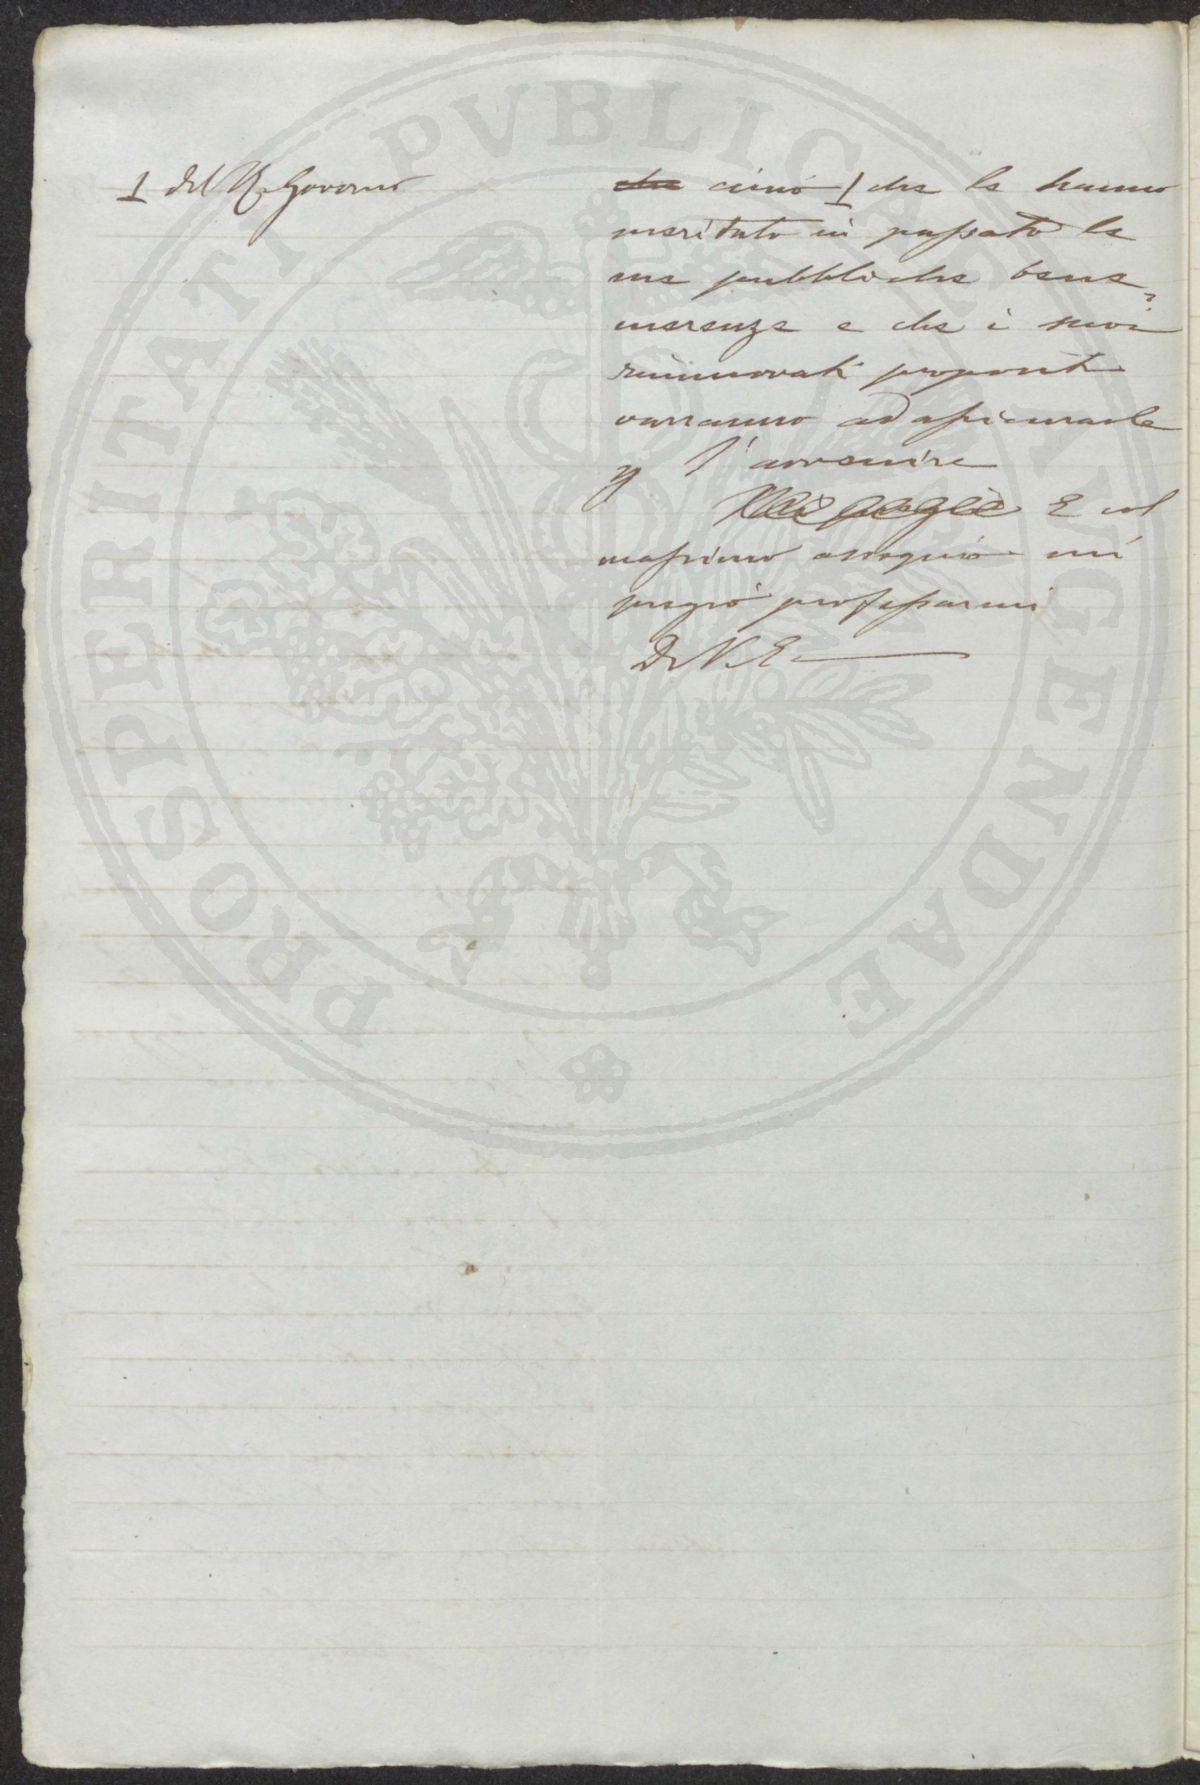 1 del R. Governo
che cinio 1 che le hanno
meritato in passato le
sue pubbliche bene=
merenze e che i suoi
rinnovati propositi
varranno ad assicurarle
p l'avvenire
Mi pregio E col
massimo ossequio mi
pregio professarmi
Di V. E.
PROSPERITATI PVBLICAE AVGENDAE